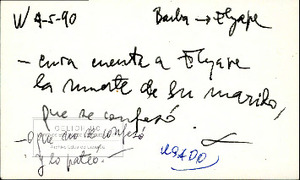 W 4-5-90 Barba → Elyape
- cura cuenta a Elyape
la muerte de su marido,
que se confesó.
- O que no se confesó
y lo pateó.
USADO